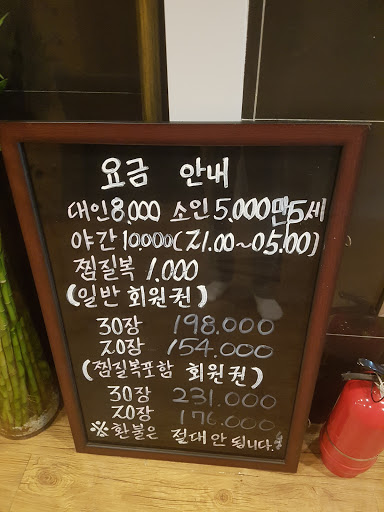 요금 안내
대인8.000 소인5.000만5세
야간10000(21.00~05.00)
찜질복 1.000
(일반 회원권)
30장 198.000
20장 154.000
(찜질복포함 회원권)
30장 231.000
20장 176.000
※환불은 절대 안됩니다.